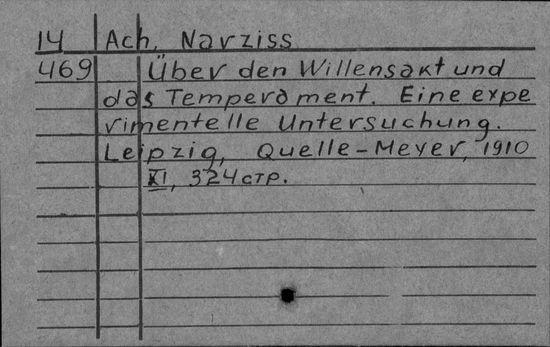 14 Ach, Narziss
469 Über den Willensakt und
das Temperament. Eine expe
rimentelle Untersuchung.
Leipzig, Quelle-Meyer, 1910
XI, 324 стр.